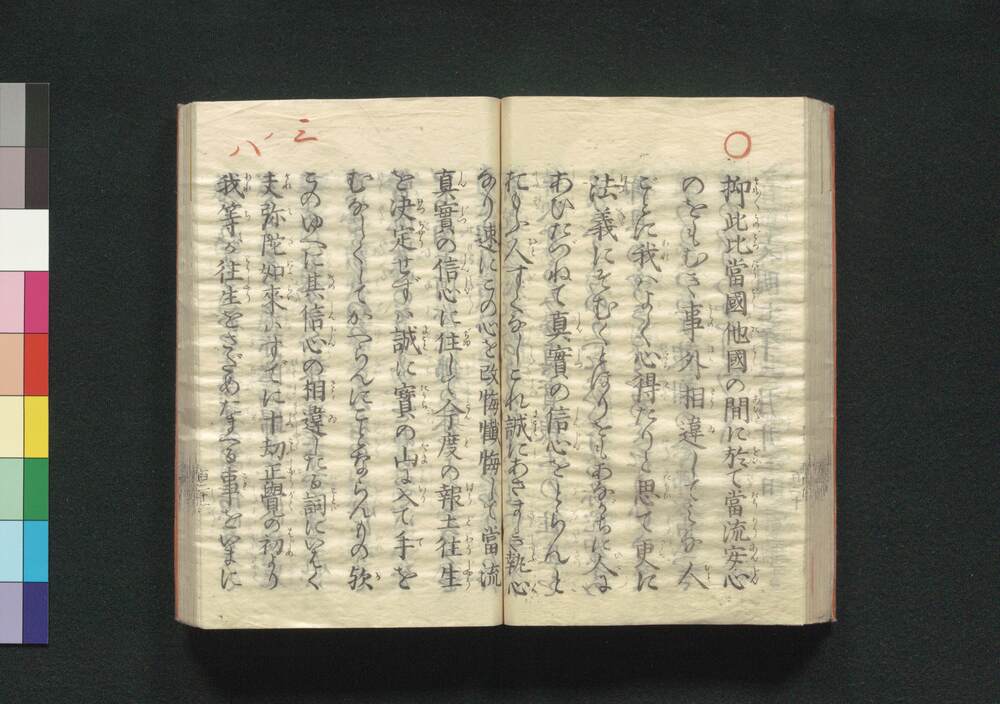 〇
抑此比當國他國の間に於て當流安心
のをもむき事外相違してみな人
ごとに我はよく心得たりと思て更に
法義にそむくとほりをもあながちに人に
あひたづねて真實の信心をとらんと
おもふ人すくなしこれ誠にあさましき執心
なり速にこの心を改悔懺悔して當流
真實の信心に住して今度の報土往生
を決定せずは誠に寶の山に入て手を
むなしくしてかへらんにことならんもの歟
このゆへに其信心の相違したる詞にいはく
夫弥陀如來はすでに十劫正覺の初より
我等が往生をさだめたまへる事をいまに
三ノ八